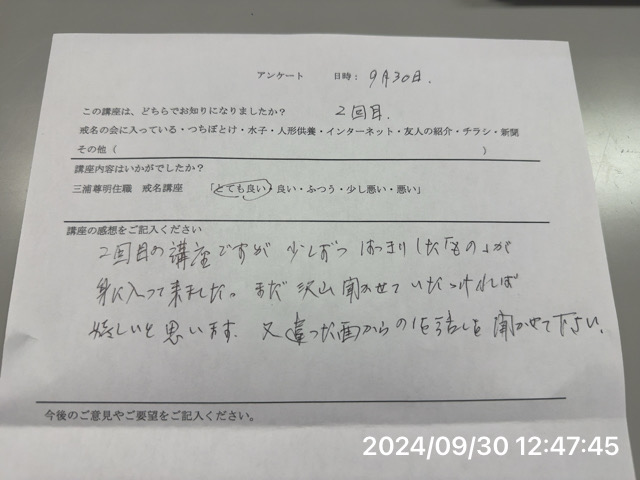 アンケート 日時：9月30日.
この講座は、どちらでお知りになりましたか？ 2回目.
戒名の会に入っている・つちぼとけ・水子・人形供養・インターネット・友人の紹介・チラシ・新聞
その他（ ）
講座内容はいかがでしたか？
三浦尊明住職 戒名講座 「とても良い・良い・ふつう・少し悪い・悪い」
講座の感想をご記入ください
2回目の講座ですが 少しずつ はっきりした「もの」が
身に入って来ました。まだ 沢山 聞かせていただければ
嬉しいと思います. 又違った面からの お話しを 聞かせて下さい.
今後のご意見やご要望をご記入ください。
2024/09/30 12:47:45